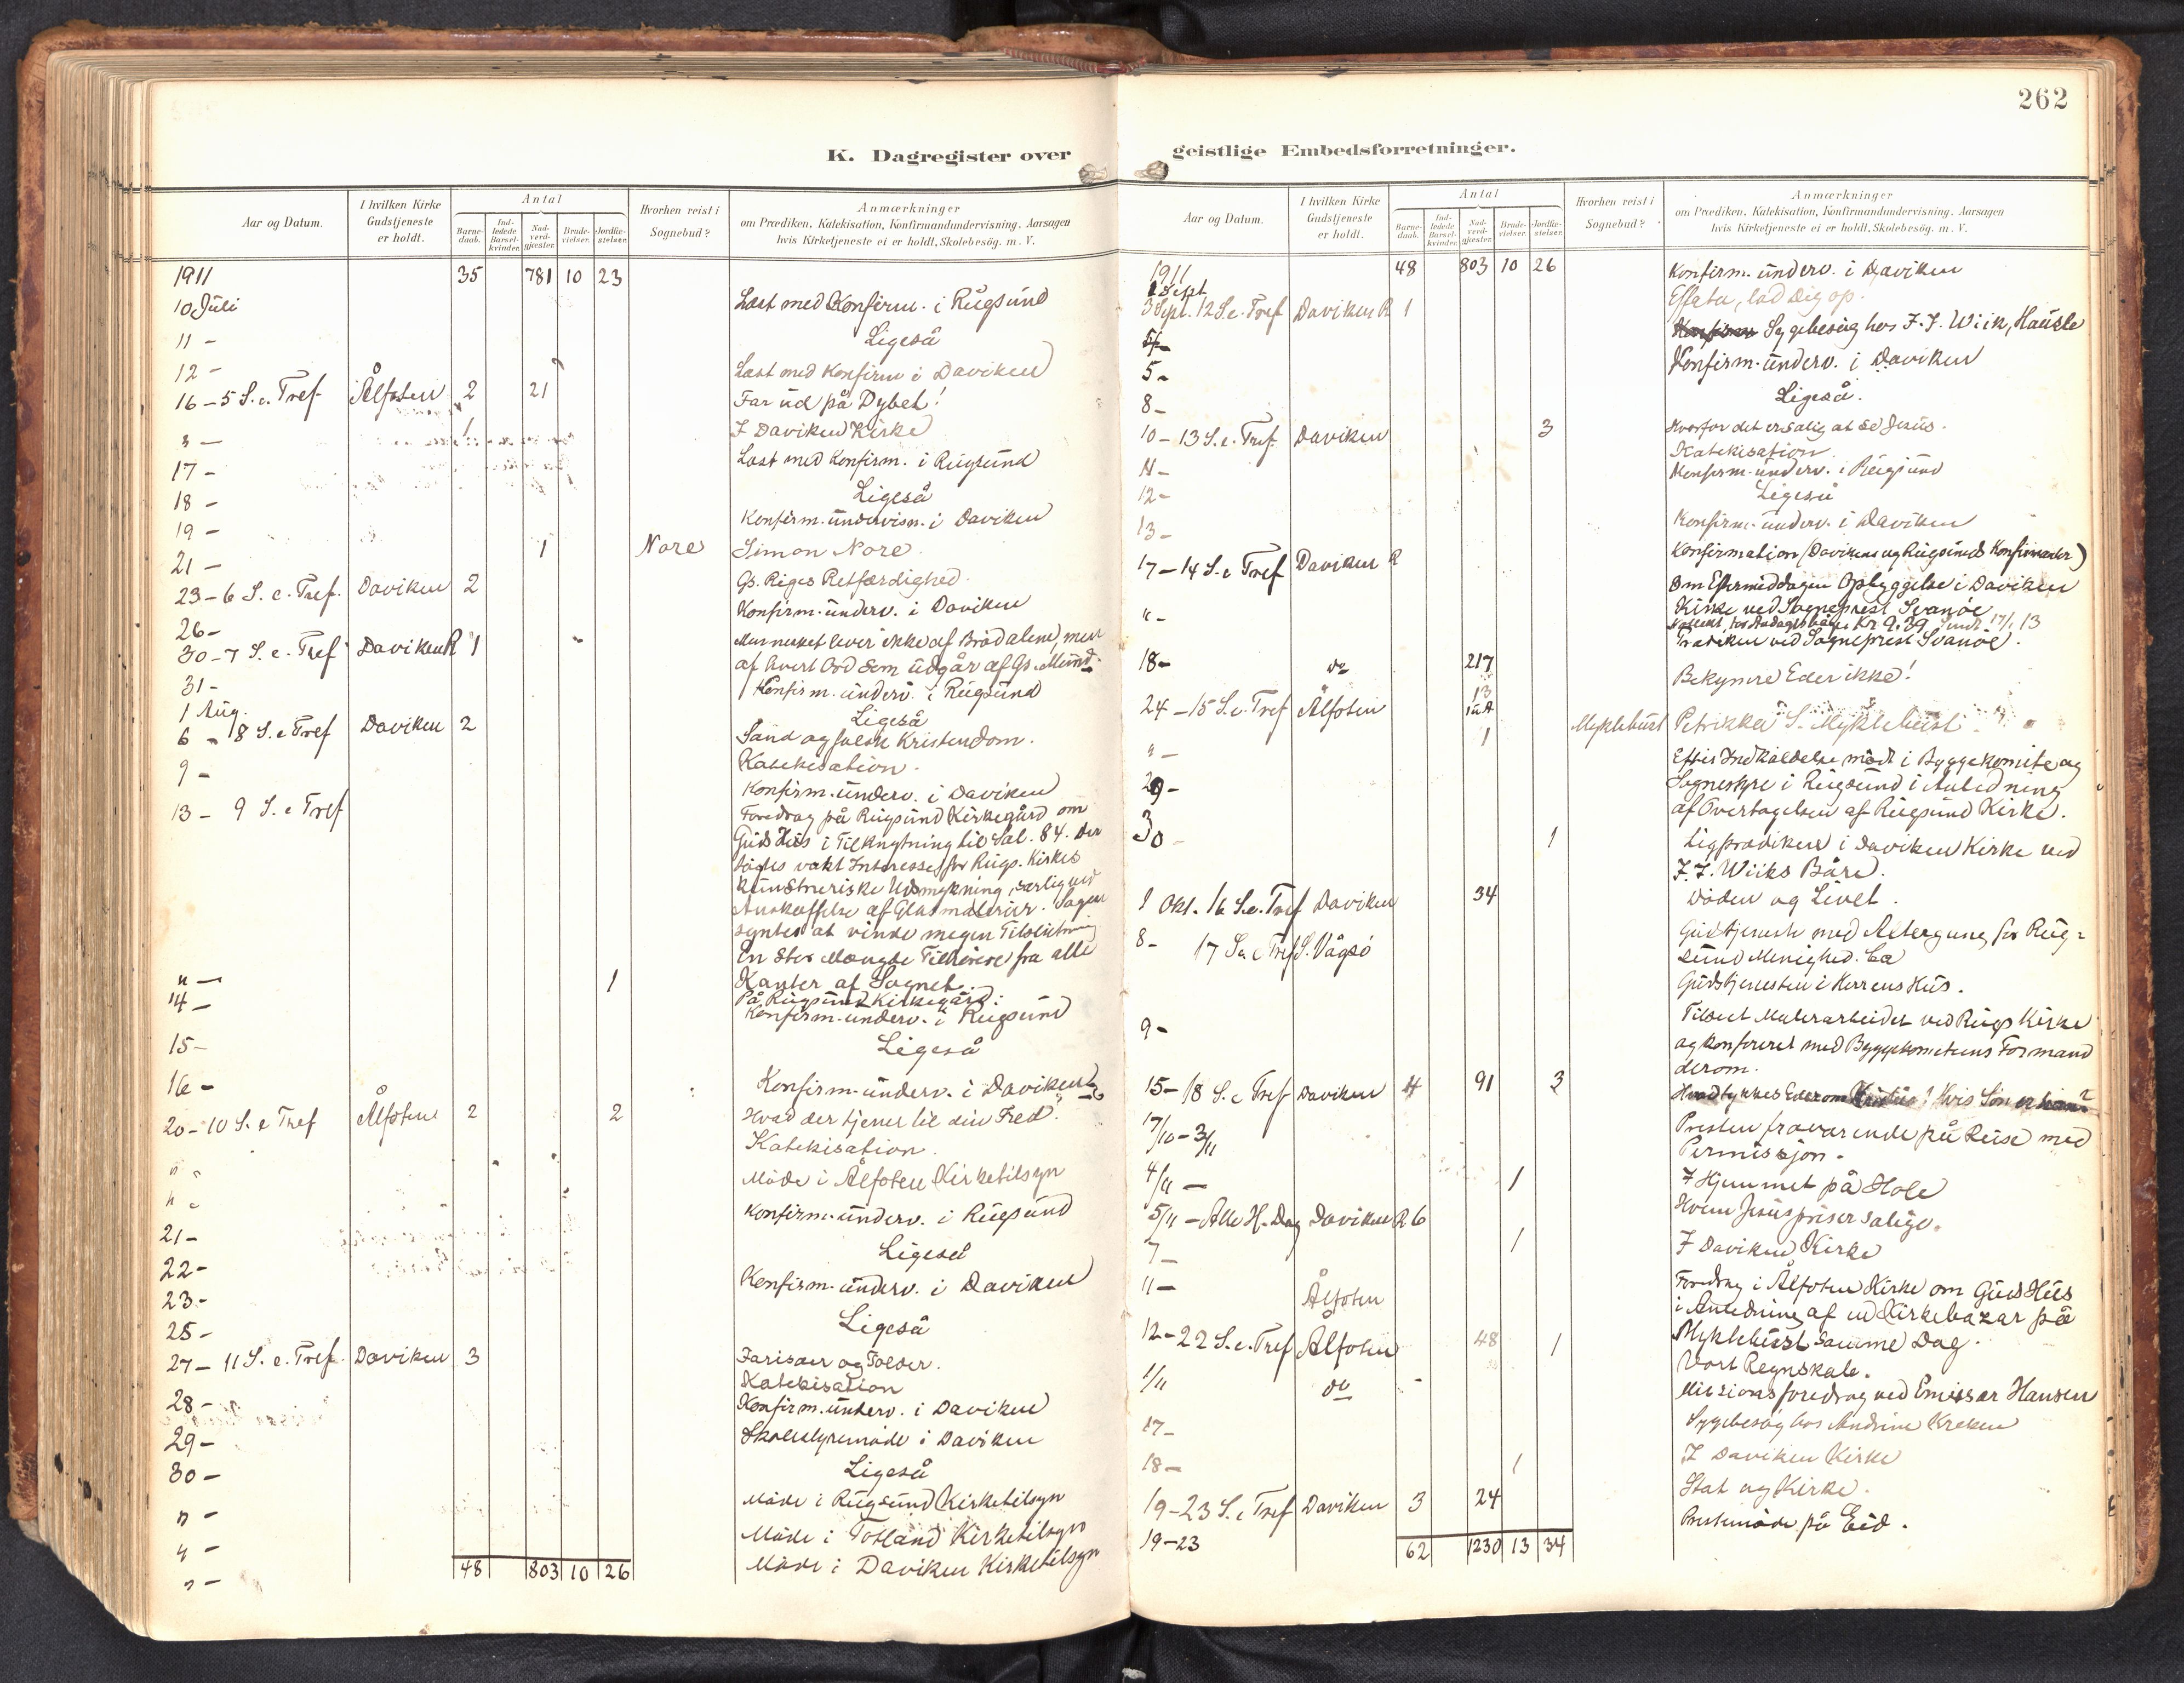 262
K. Dagregister over geistlige Embedsforretninger.
Aar og Datum. I hvilken Kirke Gudstjeneste er holdt. Antal Barnedaab. Indledede Barselkvinder. Nadverdgjester. Brudevielser. Jordfæstelser. Hvorhen reist i Sognebud? Anmærkninger om Prædiken, Katekisation, Konfirmandundervisning, Aarsagen hvis Kirketjeneste ei er holdt, Skolebesög, m. V.
1911 35 781 10 23
10 Juli Læst med Konfirm. i Rugsund
11 - Ligeså
12 - Læst med Konfirm i Daviken
16 - 5 S. e. Tref. Ålfoten 2 21 Far ud på Dybet!
I Daviken Kirke
17 - Læst med Konfirm. i Rugsund
18 - Ligeså
19 - Konfirm. undervisn. i Daviken
21 - 1 Nore Simon Nore.
23 - 6 S. e. Tref. Daviken 2 Gs. Riges Retfærdighed.
26 - Konfirm. underv. i Daviken
30 - 7 S. e. Tref Daviken R 1 Mennesket lever ikke af Bröd alene, men
af hvert Ord som udgår af Gs. Mund.
31 - Konfirm. underv. i Rugsund
1 Aug. Ligeså
6 - 8 S. e Tref Daviken 2 Sand og falsk Kristendom.
Katekisation.
9 - Konfirm. underv. i Daviken
13 - 9 S. e Tref Foredrag på Rugsund Kirkegård om
Guds Hus i Tilknytning til Sal. 84. Der
söges vakt Interesse for Rugs. Kirkes
kunstneriske Udsmykning, særlig ved
Anskaffelse af Glasmalerier. Sagen
syntes at vinde megen Tilslutning
En stor Mængde Tilhörere fra alle
Kanter af Sognet.
" - 1 På Rugsund Kirkegård.
14 - Konfirm. underv. i Rugsund
15 - Ligeså
16 - Konfirm. underv. i Daviken
20 - 10 S. e Tref Ålfoten 2 2 Hvad der tjener til din Fred.
Katekisation.
" - Möde i Ålfoten Kirketilsyn
21 - Konfirm. underv. i Rugsund
22 - Ligeså
23 - Konfirm. underv. i Daviken
25 - Ligeså
27 - 11 S. e. Tref. Daviken 3 Farisæer og Tolder.
Katekisation
28 - Konfirm. underv. i Daviken
29 - Skolestyremöde i Daviken
30 - Ligeså
" - Möde i Rugsund Kirketilsyn
" - Möde i Totland Kirketilsyn
" - Möde i Daviken Kirketilsyn
48 803 10 26
Aar og Datum. I hvilken Kirke Gudstjeneste er holdt. Antal Barnedaab. Indledede Barselkvinder. Nadverdgjester. Brudevielser. Jordfæstelser. Hvorhen reist i Sognebud? Anmærkninger om Prædiken, Katekisation, Konfirmandundervisning, Aarsagen hvis Kirketjeneste ei er holdt, Skolebesög, m. V.
1911 48 803 10 26
1 Sept Konfirm. underv. i Daviken
3 Sept. 12 S. e. Tref Daviken R 1 Effata, lad dig op.
Sygebesög hos J. J. Wiik, Hausle
5 - Konfirm. underv. i Daviken
8 - Ligeså.
10 - 13 S. e. Tref. Daviken 3 Hvorfor det er salig at se Jesus.
Katekisation
11 - Konfirm. underv. i Rugsund
12 - Ligeså
13 - Konfirm. underv. i Daviken
17 - 14 S. e Tref Daviken R Konfirmation (Davikens og Rugsunds Konfirmander)
" - Om Eftermiddagen Opbyggelse i Daviken
Kirke ved Sogneprest Svanöe
Kr 9.39 17/1 13
18 - do 217 Prædiken ved Sogneprest Svanöe.
24 - 15 S. e. Tref Ålfoten 13 Bekymre Eder ikke!
" - 1 Myklebust Petrikka S. Myklebust
29 - Efter Indkaldelse mödt i Byggekomite og
Sognestyre i Rugsund i Anledning
af Overtagelsen af Rugsund Kirke.
30 - 1 Ligprædiken i Daviken Kirke ved
J. J. Wiiks Båre.
1 Okt. 16 S. e. Tref Daviken 34 Döden og Livet.
8 - 17 S. e Tref S. Vågsö Gudstjeneste med Altergang for Rugsund
Menighed.
Gudstjenesten i Herrens Hus.
9 - Tilseet Malerarbeidet ved Rugs Kirke
og konfereret med Byggekomiteens Formand
derom.
15 - 18 S. e Tref Daviken 4 91 3 Hvad tykkes Eder om Kristus? Hvis Sön er han?
17/10 - 3/11 Presten fraværende på Reise med
Permissjon.
4/11 - 1 I Hjemmet på Hole
5/11 - Alle H. Dag Daviken R 6 Hvem Jesus priser salige.
7 - 1 I Daviken Kirke
11 - Ålfoten Foredrag i Ålfoten Kirke om Guds Hus
i Anledning af en Kirkebazar på
Myklebust samme Dag.
12 - 22 S. e. Tref Ålfoten 48 1 Vort Regnskab.
do Missionsforedrag ved Emissær Hansen
17 - Sygebesög hos Andrine
18 - 1 I Daviken Kirke
19 - 23 S. e Tref Daviken 3 24 Stat og Kirke.
19-23 Prestemöde på Eid.
62 1230 13 34